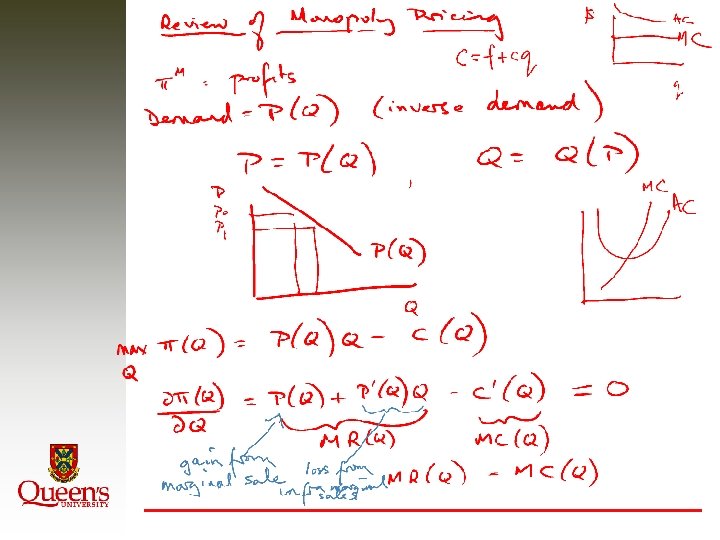 Review of Monopoly Pricing
$
AC
MC
C = f + cq
q
π^M = profits
Demand = P(Q) (inverse demand)
P = P(Q), Q = Q(P)
P
P0
P1
P(Q)
Q
MC
AC
max π(Q) = P(Q)Q - C(Q)
Q
∂π(Q)/∂Q = P(Q) + P'(Q)Q - C'(Q) = 0
MR(Q) MC(Q)
gain from marginal sale
loss from inframarginal sales
MR(Q) = MC(Q)
Queen's
UNIVERSITY